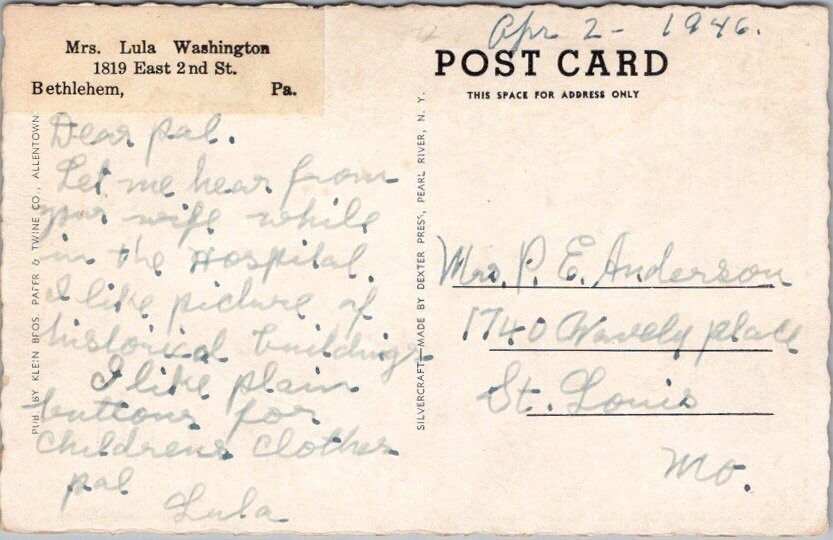 Mrs. Lula Washington
1819 East 2nd St.
Bethlehem, Pa.
Apr 2 - 1946.
POST CARD
THIS SPACE FOR ADDRESS ONLY
PUB. BY KLEIN BROS. PAPER & TWINE CO., ALLENTOWN
Dear pal.
Let me hear from
your wife while
in the Hospital.
I like picture of
historical buildings
I like plain
buttons for
childrens clothes
pal
Lula
SILVERCRAFT—MADE BY DEXTER PRESS, PEARL RIVER, N. Y.
Mrs. P. E. Anderson
1740 Wavely place
St. Louis
Mo.